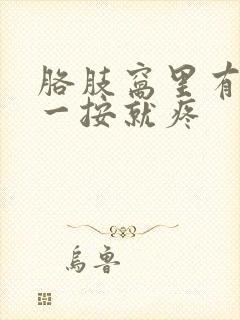 胳肢窝里有
一按就疼
乌鲁